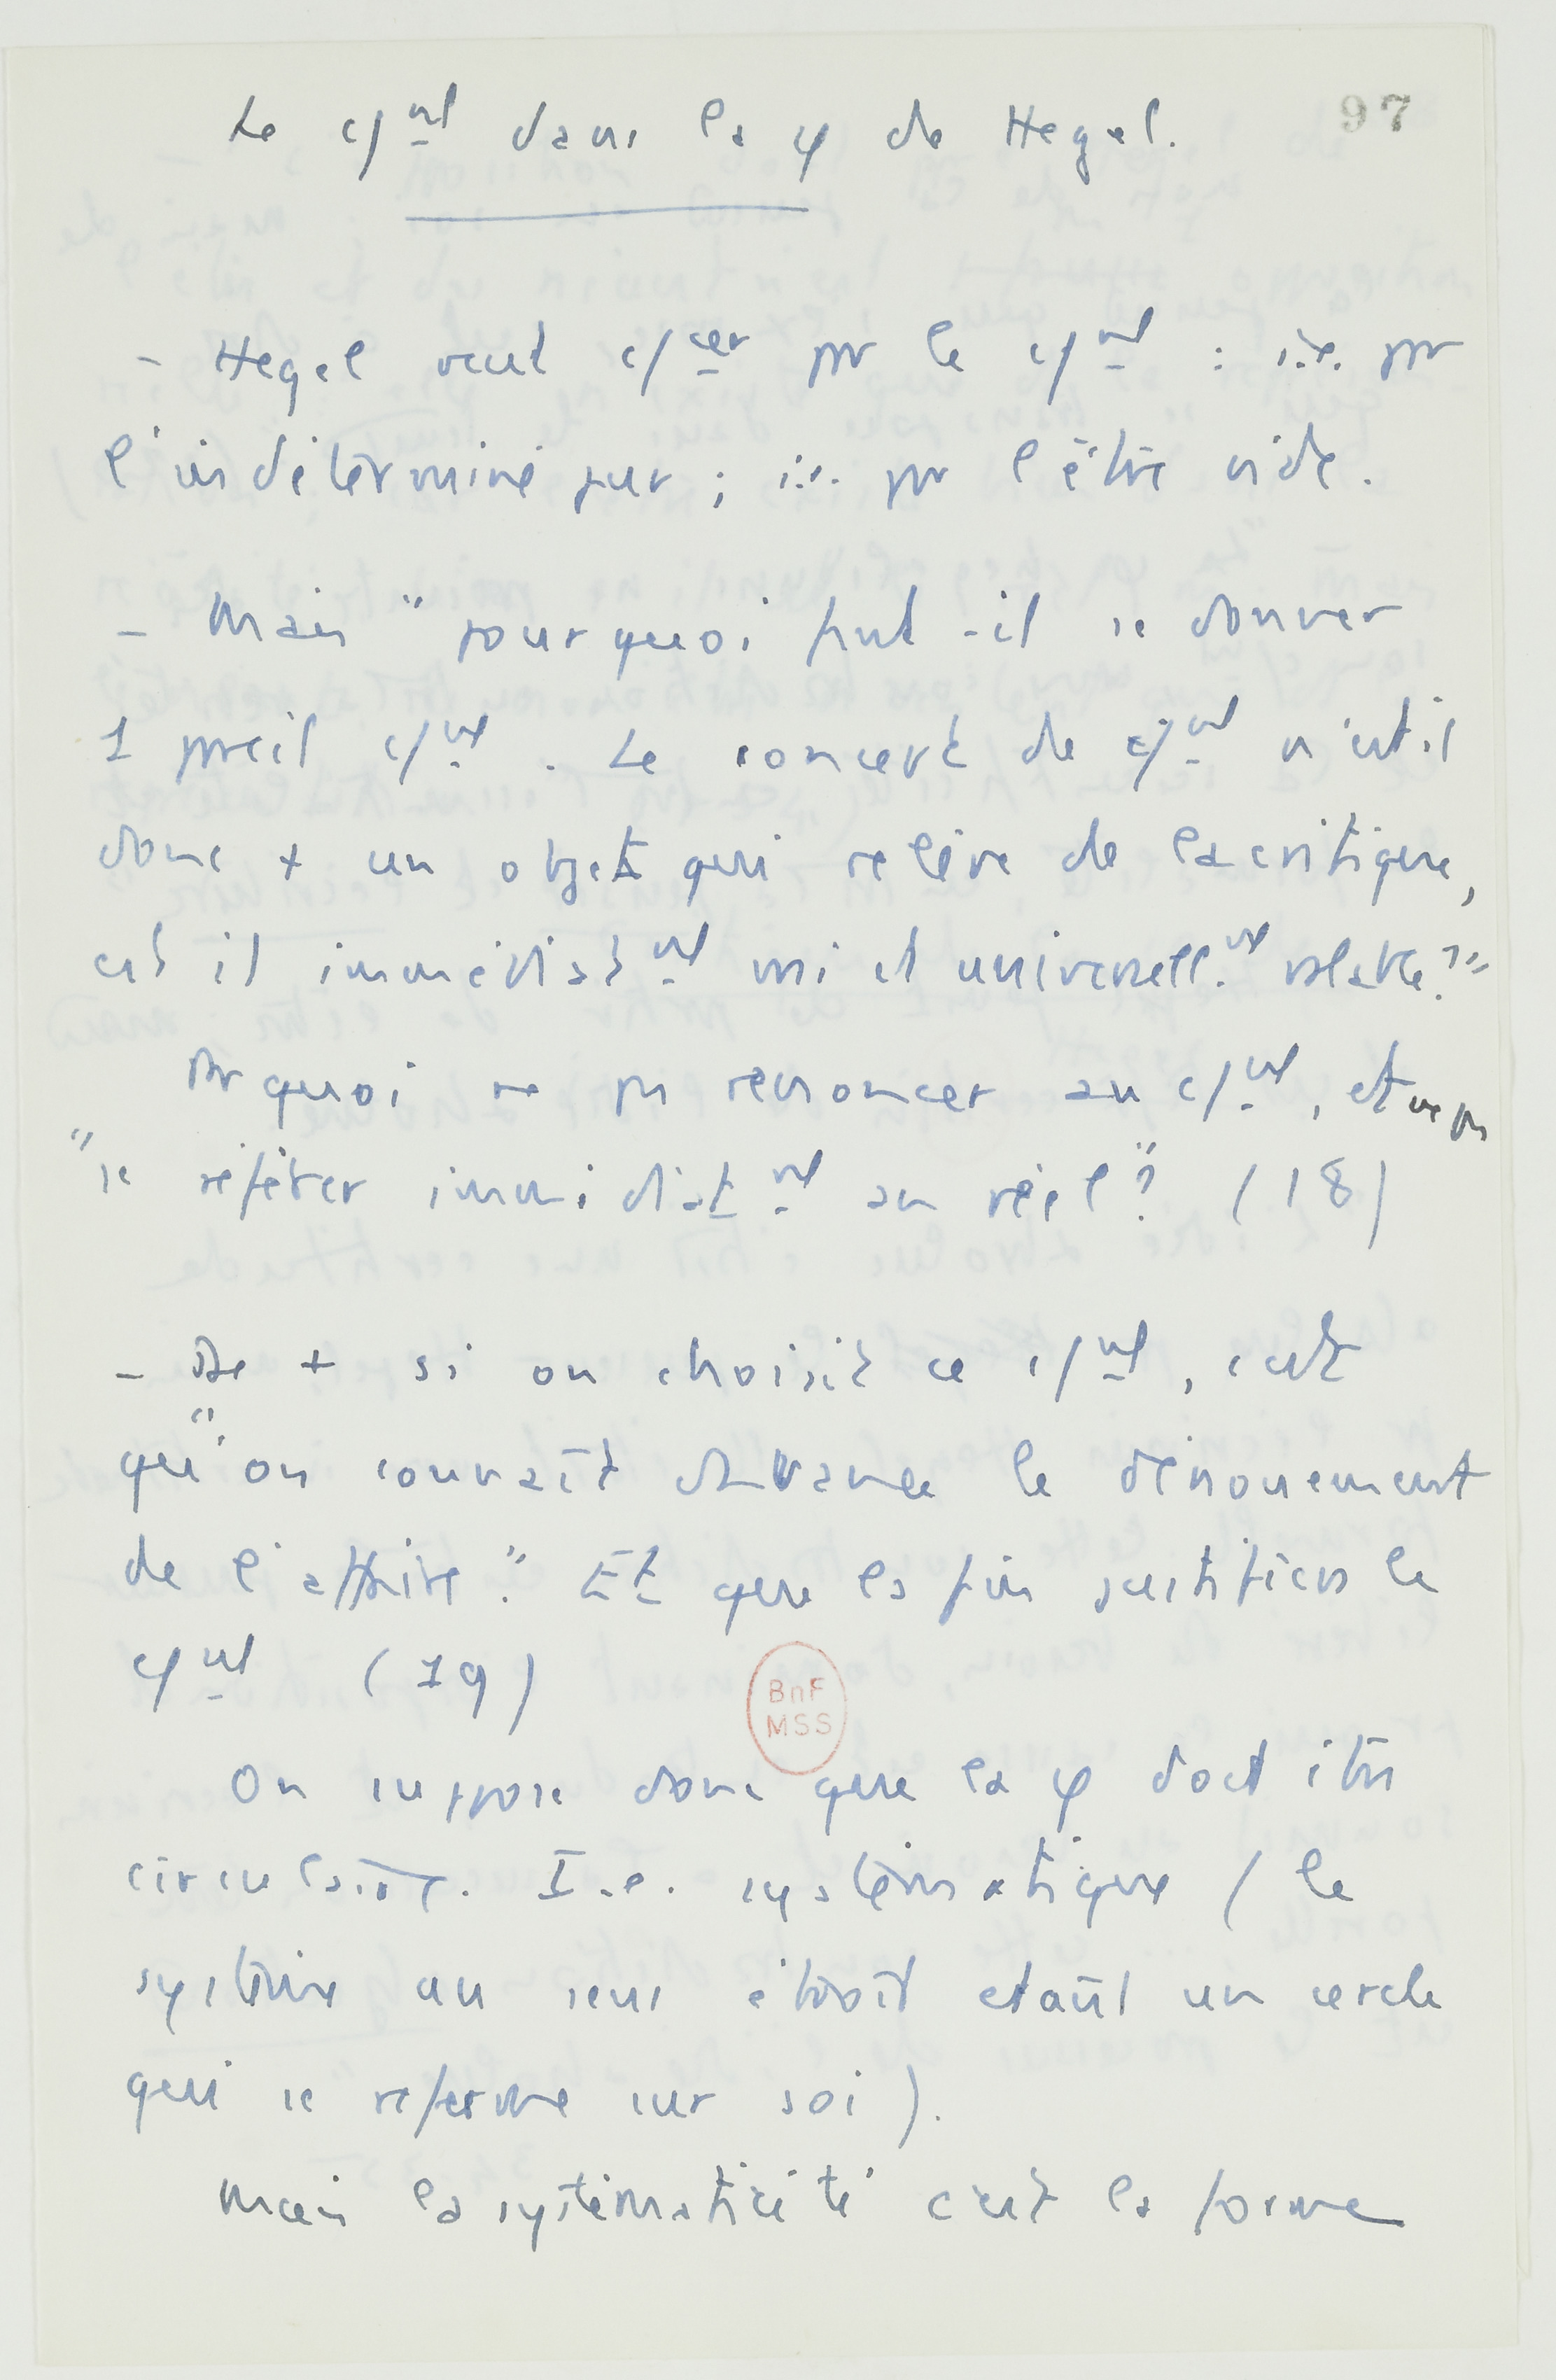 Le c/mt dans la φ de Hegel.
97
- Hegel veut c/cer pr le c/mt : i.e. pr
l'indéterminé pur ; i.e. pr l'être vide.
- Mais "pourquoi faut-il se donner
1 preil c/mt. Le concept de c/mt n'est il
donc + un objet qui relève de la critique,
est il immédiatmt vrai et universell.mt valable?"
Pr quoi ne pas renoncer au c/mt, et ne pas
"se référer immédiatmt au réel"? (18)
- De + si on choisit ce c/mt, c'est
qu'"on connaît d'avance le dénouement
de l'affaire." Et que la fin justifiera le
c/mt (19)
BnF
MSS
On suppose donc que la φ doit être
circulaire. I.e. systématique (le
système au sens étroit étant un cercle
qui se referme sur soi).
Mais la systématicité c'est la forme